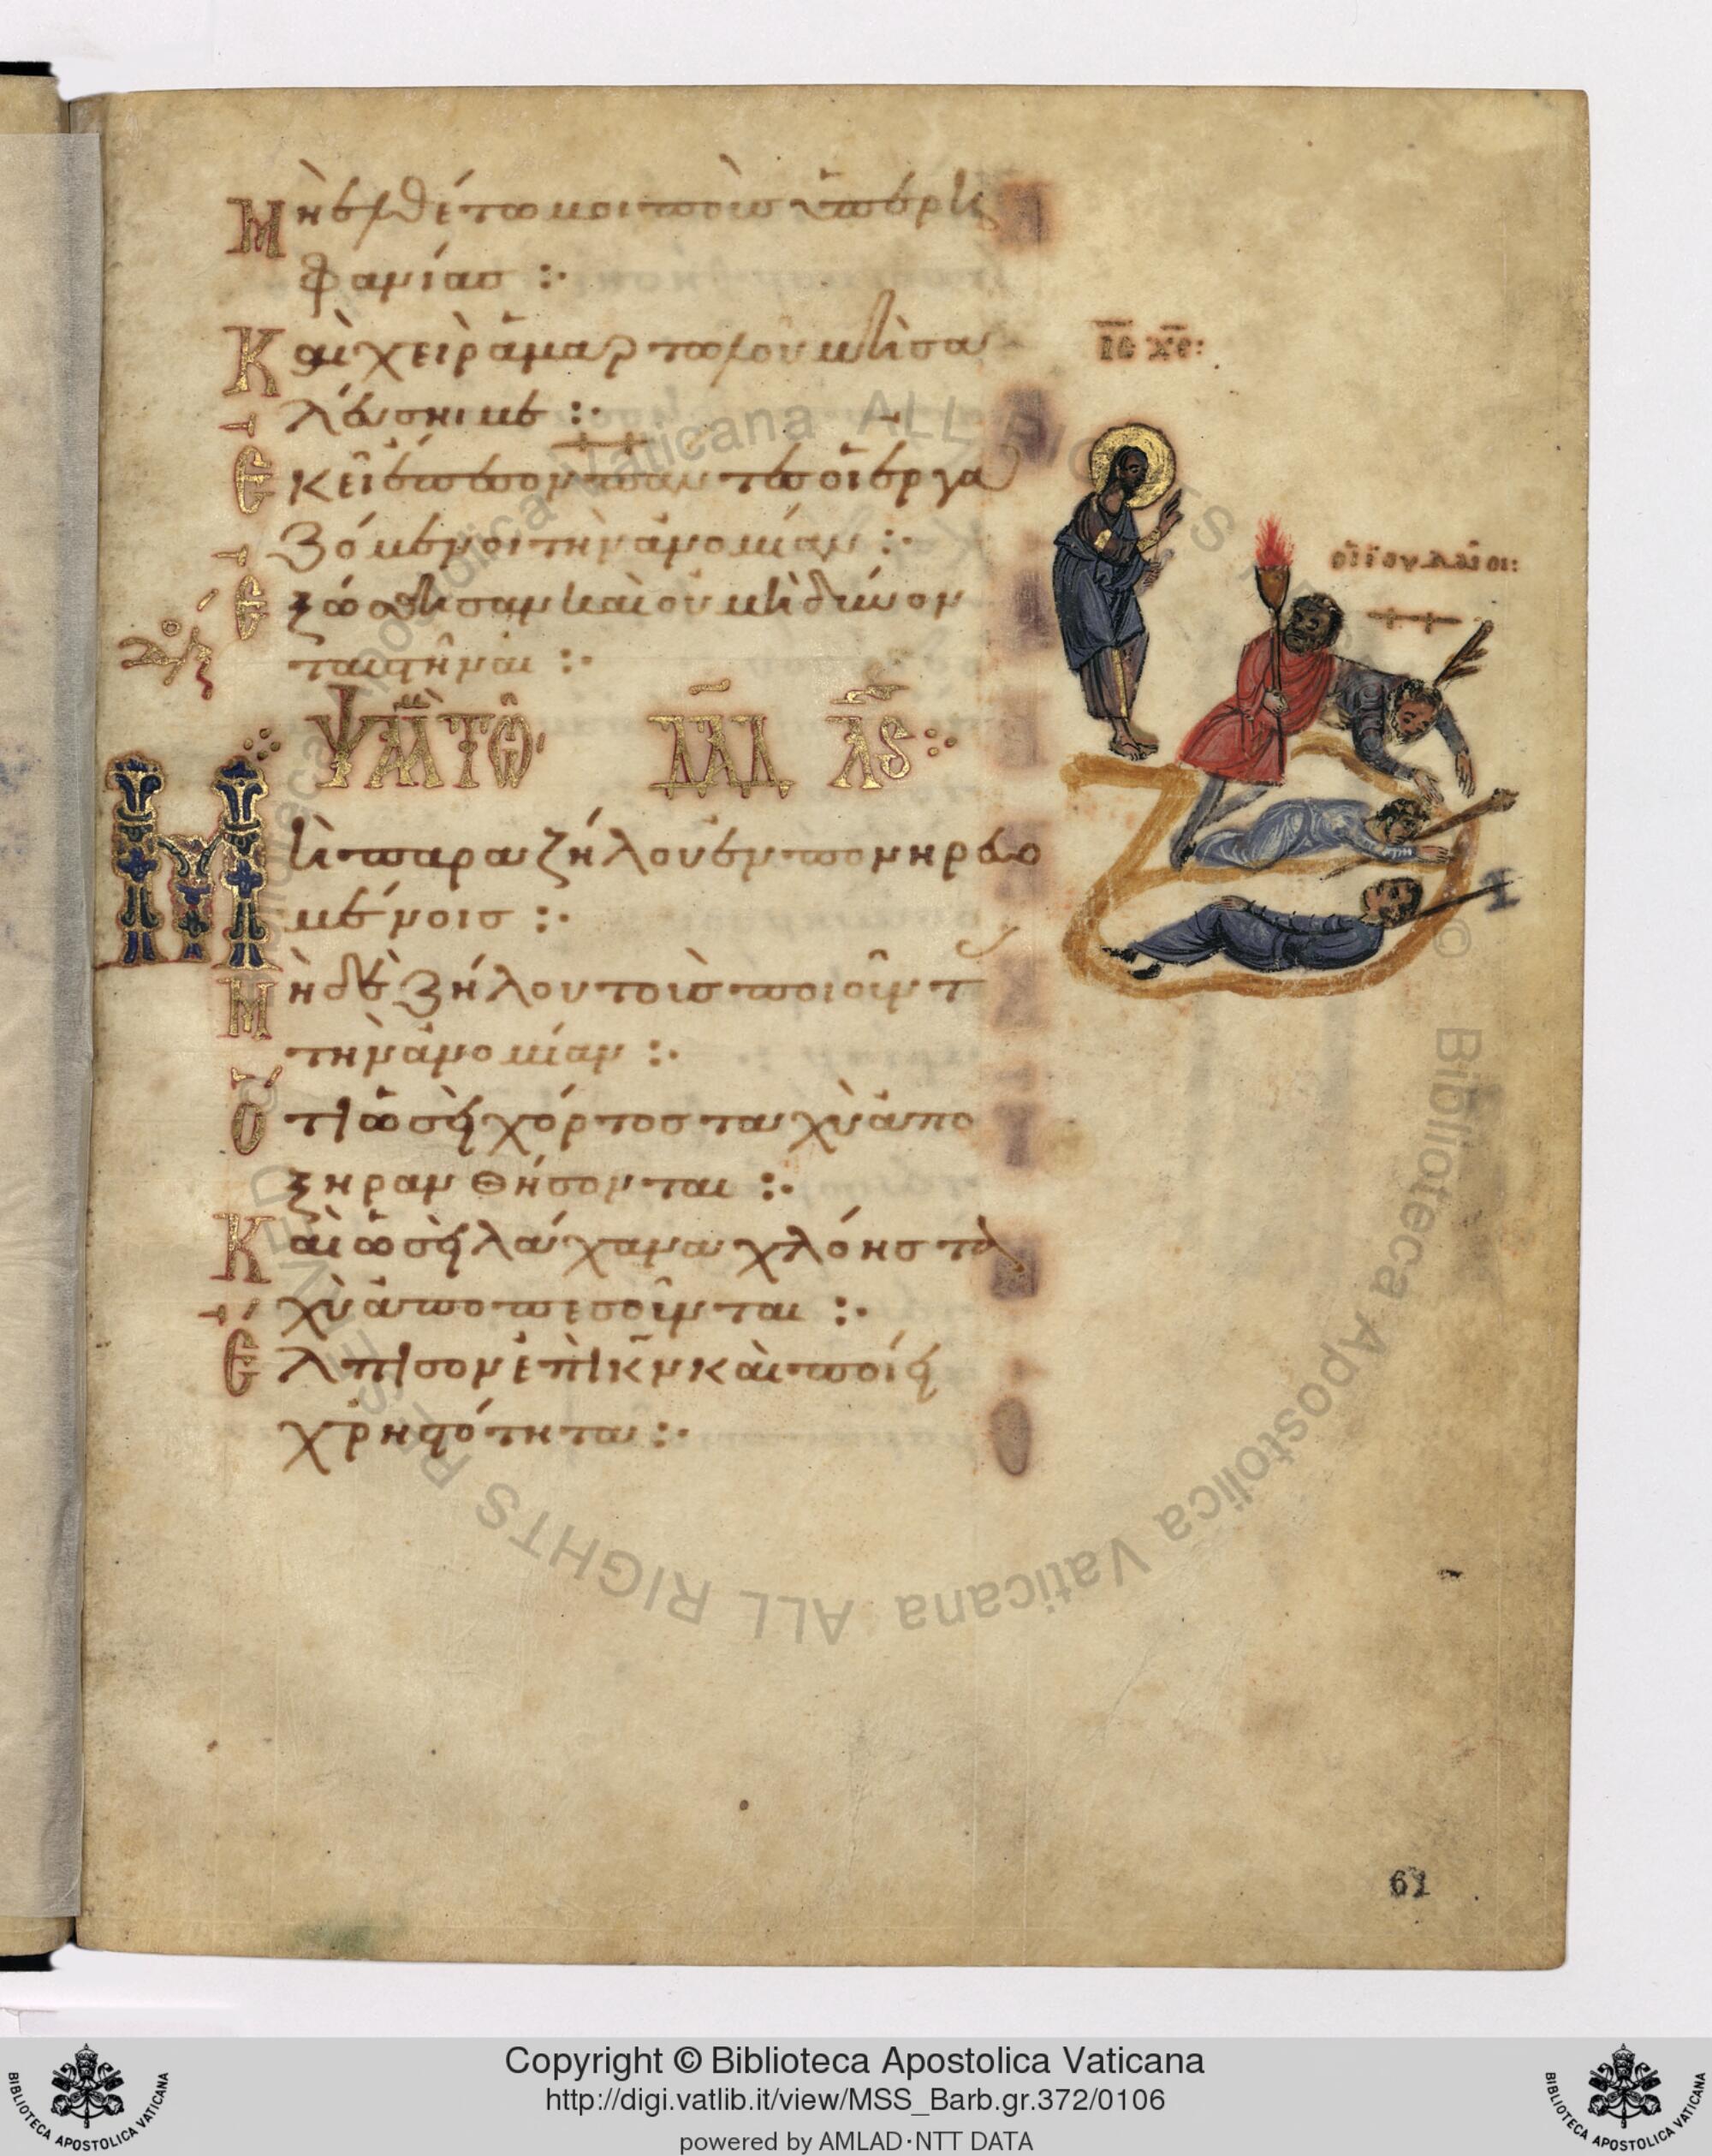 Μὴ ἐλθέτω μοι ποὺς ὑπερη
φανίας :·
Καὶ χεὶρ ἁμαρτωλοῦ μὴ σα
λεύσηι με :·
Ἐκεῖ ἔπεσον πάντες οἱ ἐργα
ζόμενοι τὴν ἀνομίαν :·
Ἐξώσθησαν καὶ οὐ μὴ δύνων
ται στῆναι :·
ΨΑΛΜ ΤΩ ΔΑΔ ΛϚ
Μὴ παραζήλου ἐν πονηρευο
μένοις :·
Μηδὲ ζήλου τοὺς ποιοῦντ
τὴν ἀνομίαν :·
Ὅτι ὡσεὶ χόρτος ταχὺ ἀπο
ξηρανθήσονται :·
Καὶ ὡσεὶ λάχανα χλόης τα
χὺ ἀποπεσοῦνται :·
Ἔλπισον ἐπὶ κν καὶ ποίει
χρηστότητα :·
ΙΣ ΧΣ:
οἱ ἰουδαῖοι:
61
© Biblioteca Apostolica Vaticana ALL RIGHTS RESERVED
Copyright © Biblioteca Apostolica Vaticana
http://digi.vatlib.it/view/MSS_Barb.gr.372/0106
powered by AMLAD·NTT DATA
BIBLIOTECA APOSTOLICA VATICANA
BIBLIOTECA APOSTOLICA VATICANA